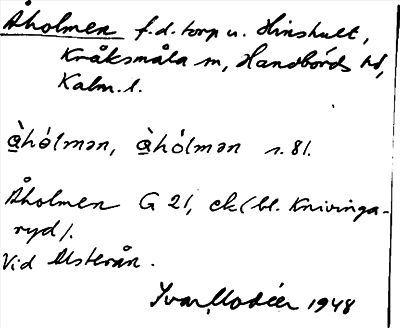 Åholmen f.d. torp u. Hinshult,
Kråksmåla sn, Handbörds hd,
Kalm. l.
àhólmən, àhólmən s. 81.
Åholmen G 21, ek (bl. Knivinga-
ryd).
Vid Alsterån.
Ivar Modéer 1948